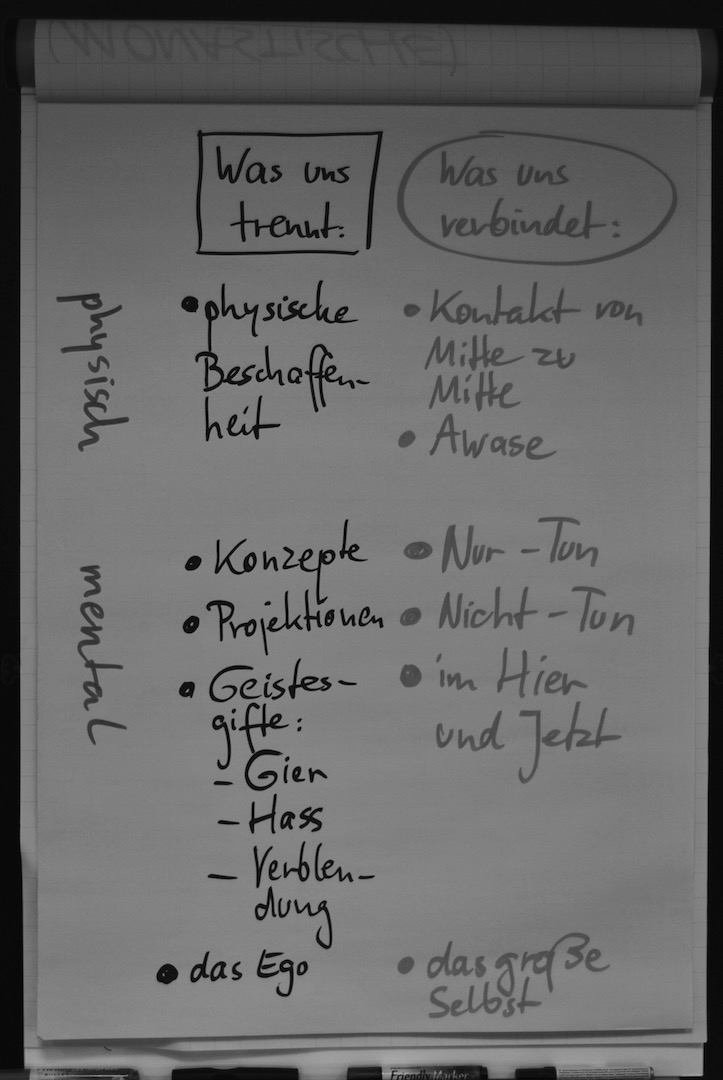 (MONASTISCHE)
Was uns
trennt:
Was uns
verbindet:
physisch
• physische
Beschaffen-
heit
• Kontakt von
Mitte zu
Mitte
• Awase
mental
• Konzepte
• Projektionen
• Geistes-
gifte:
- Gier
- Hass
- Verblen-
dung
• das Ego
• Nur-Tun
• Nicht-Tun
• im Hier
und Jetzt
• das große
Selbst
Friendly Marker